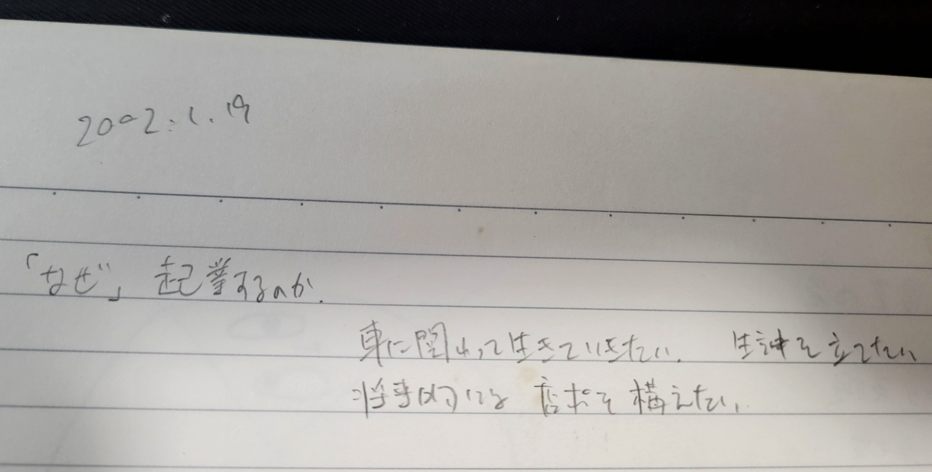 2002.1.19
「なぜ」起業するのか.
車に関わって生きていきたい. 生計を立てたい
将来的には 店舗を構えたい.